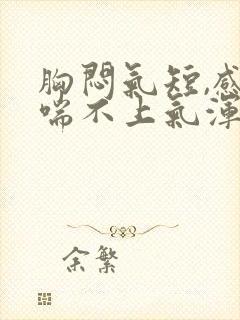 胸悶氣短,感
喘不上氣渾
余繁